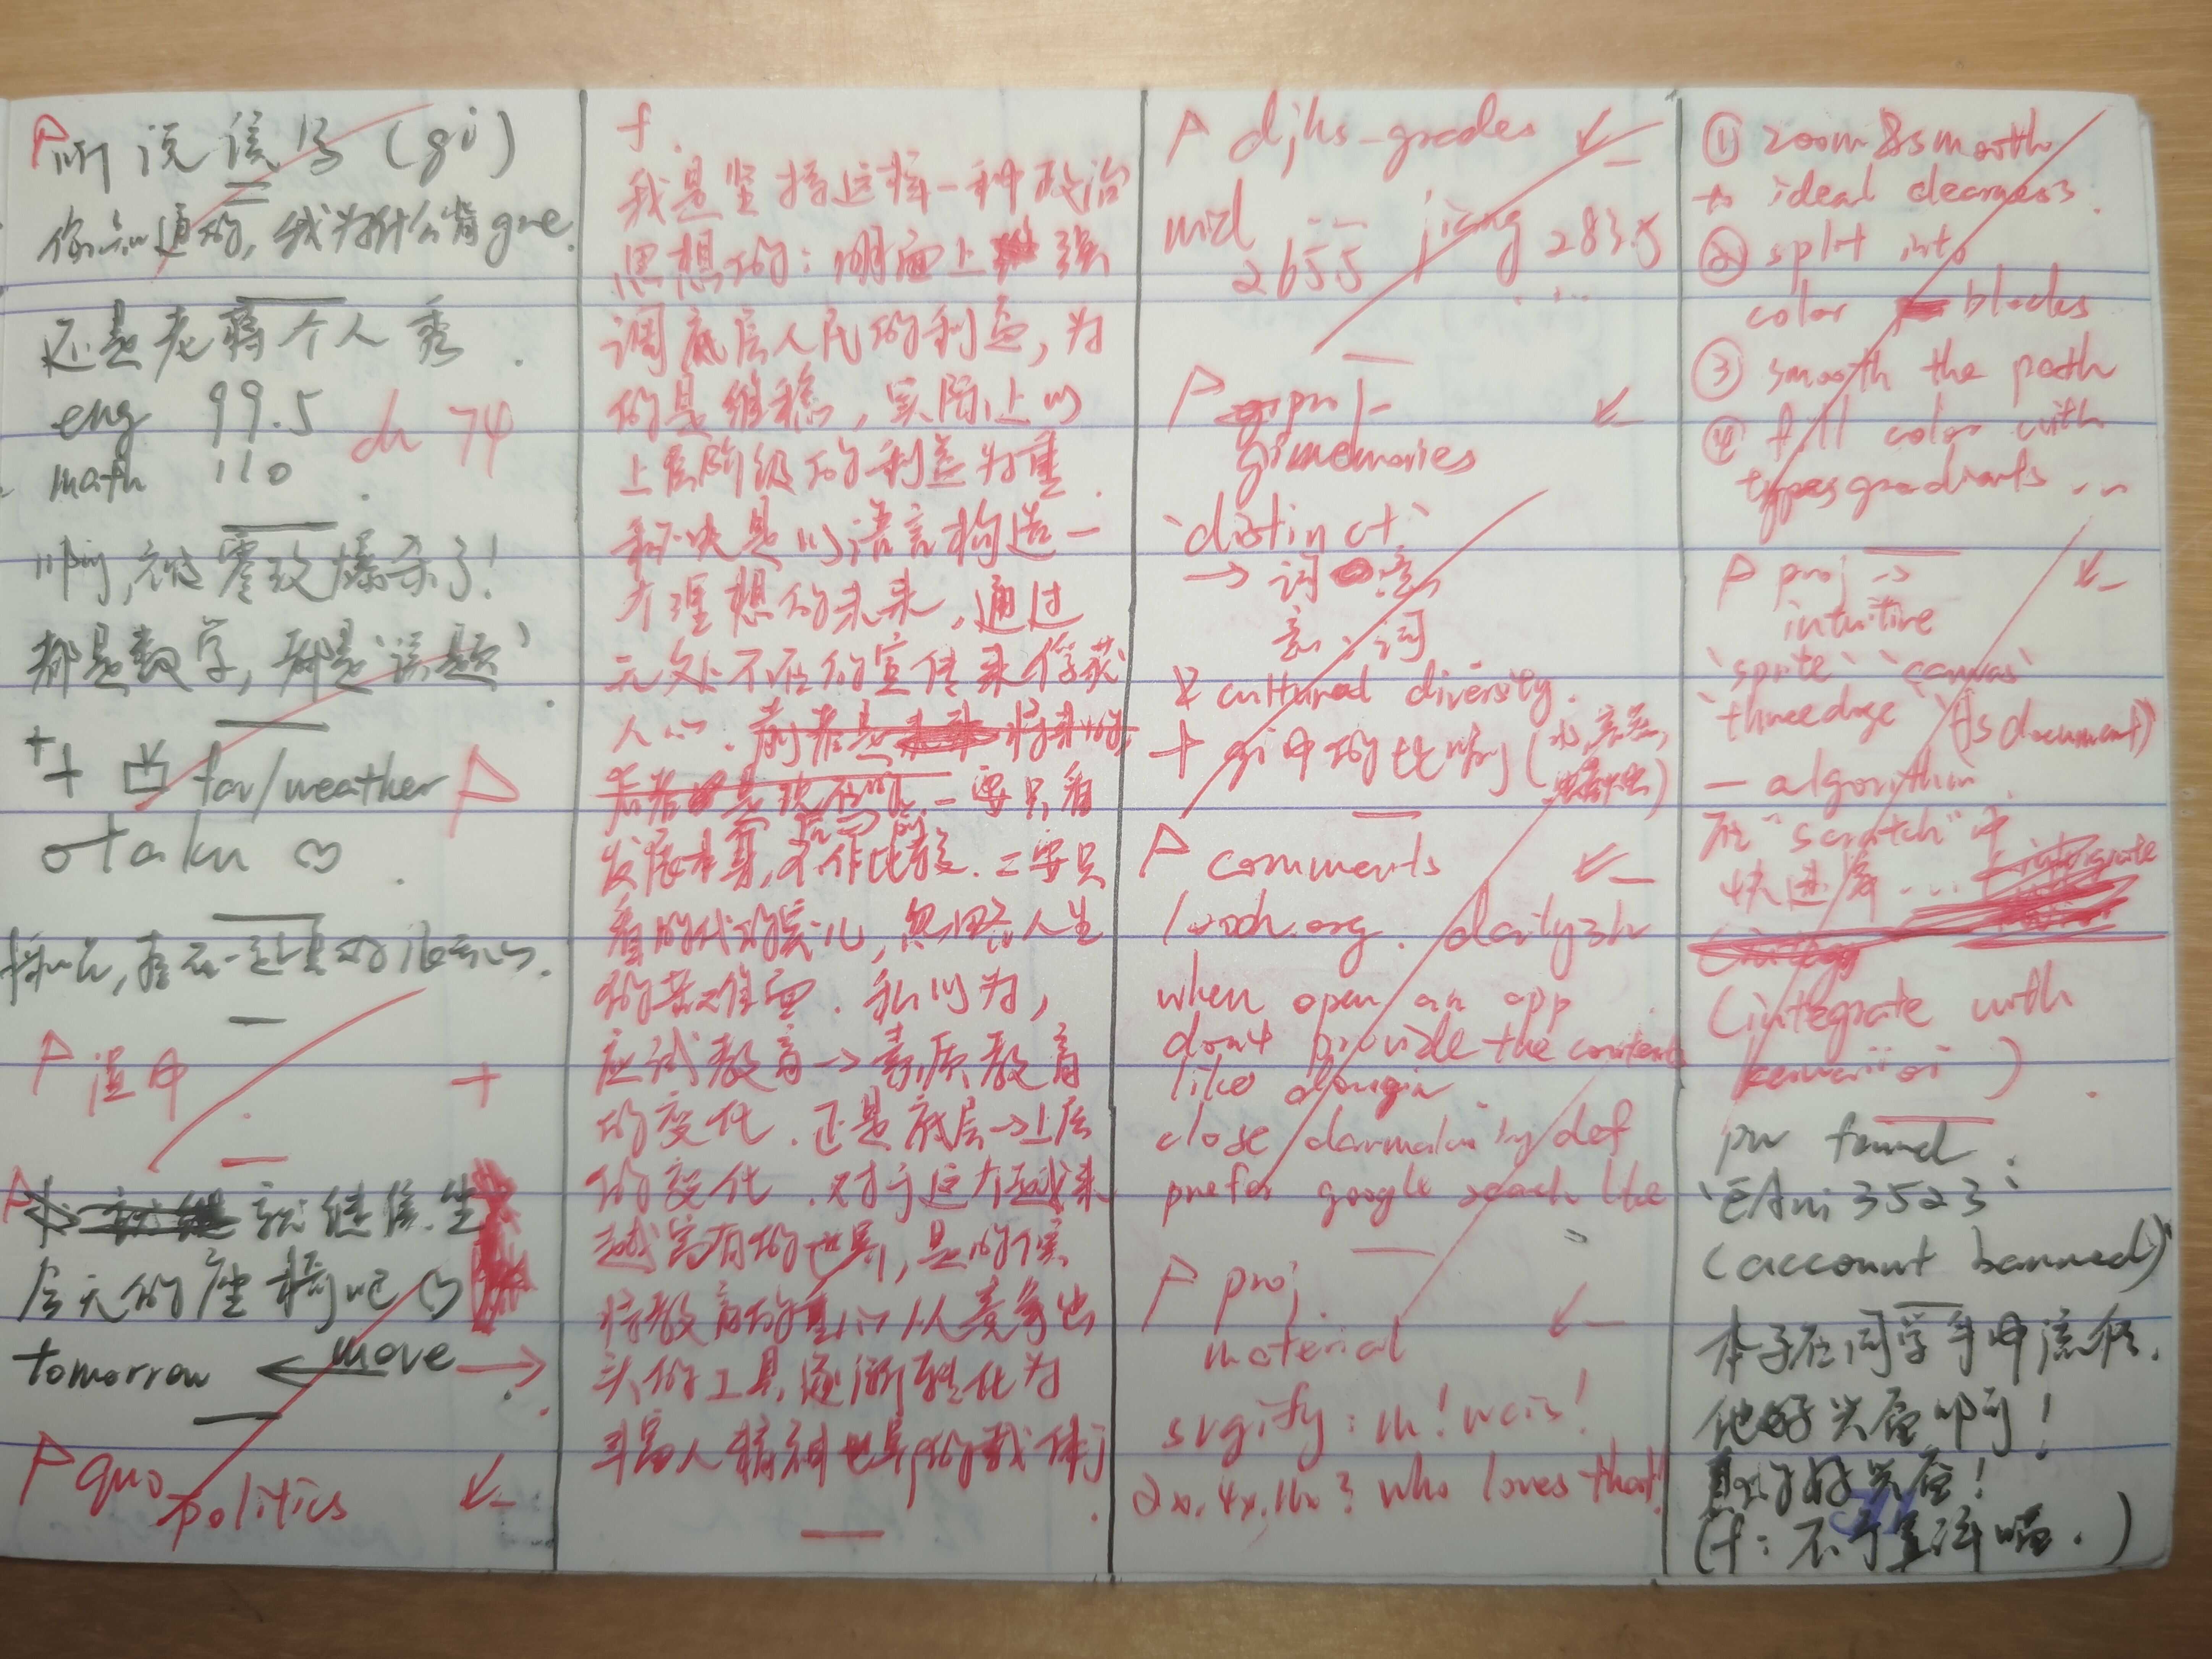 听说读写 (gi)
你知道的, 我为什么背gre.
还是老蒋个人秀.
eng 99.5
ch 74
math 110.
啊, 被零玟爆杀了!
都是数学, 都是'误题'.
++ 凹 fav/weather
otaku ♡.
P 道中 +
就继续坐
后天的座椅吧♡
tomorrow ← move →
P quo politics ↙
f.
我是坚持这样一种政治
思想的: 明面上强
调底层人民的利益, 为
的是维稳, 实际上以
上层阶级的利益为重.
秘诀是以语言构造一
个理想的未来, 通过
无处不在的宣传来俘获
人心.
一要只看
发展本身, 不作比较. 二要只
看时代的变化, 忽略人生
的苦难面. 我以为,
应试教育→素质教育
的变化. 还是底层→上层
的变化. 对于这个越来
越富有的世界, 是时候
将教育的重心从竞争出
头的工具, 逐渐转化为
丰富人精神世界的载体了.
P djhs-grades ↙
mid 265.5 jiang 283.5
...
P proj- ↙
gimemories
`distinct`
→ 词、意
意、词
& cultural diversity.
+ gi中的比喻
P comments ↙
looch.org. dailyzh
when open an app
don't provide the contents
like douyin
close danmaku by def
prefer google seach like
P proj. ↙
material
svgify: m! wais!
2x, 4x, 16x? who loves that!
① zoom & smooth
to ideal clearness.
② split into
color blocks
③ smooth the path
④ fill color with
types gradients ...
P proj → ↙
intuitive
`sprite` `canvas`
`threedage` (js document)
— algorithm
在 "scratch" 中
快进度...
(integrate with
kawaiioi)
pw found:
`EAni3523`
(account banned)
本子在同学手中流传.
他好兴奋啊!
真的好兴奋!
(f: 不予置评喵.)